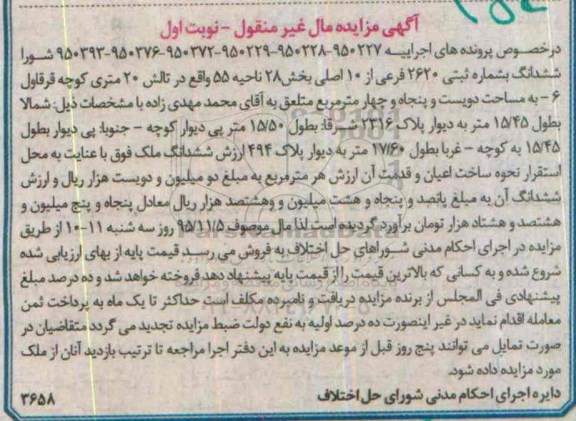 آگهی مزایده مال غیر منقول - نوبت اول
درخصوص پرونده های اجراییه ۹۵۰۲۲۷-۹۵۰۲۲۸-۹۵۰۲۲۹-۹۵۰۳۷۲-۹۵۰۳۷۶-۹۵۰۳۹۳ شورا
ششدانگ بشماره ثبتی ۲۶۲۰ فرعی از ۱۰ اصلی بخش۲۸ ناحیه ۵۵ واقع در تالش ۲۰ متری کوچه قرقاول
۶ - به مساحت دویست و پنجاه و چهار مترمربع متعلق به آقای محمد مهدی زاده با مشخصات ذیل: شمالا
بطول ۱۵/۴۵ متر به دیوار پلاک ۲۳۱۶ - شرقا: بطول ۱۵/۵۰ متر پی دیوار کوچه - جنوبا: پی دیوار بطول
۱۵/۴۵ به کوچه - غربا بطول ۱۷/۶۰ متر به دیوار پلاک ۴۹۴ ارزش ششدانگ ملک فوق با عنایت به محل
استقرار نحوه ساخت اعیان و قدمت آن ارزش هر مترمربع به مبلغ دو میلیون و دویست هزار ریال و ارزش
ششدانگ آن به مبلغ پانصد و پنجاه و هشت میلیون و وهشتصد هزار ریال معادل پنجاه و پنج میلیون و
هشتصد و هشتاد هزار تومان برآورد گردیده است لذا مال موصوف ۹۵/۱۱/۵ روز سه شنبه ۱۱-۱۰ از طریق
مزایده در اجرای احکام مدنی شوراهای حل اختلاف به فروش می رسد قیمت پایه از بهای ارزیابی شده
شروع شده و به کسانی که بالاترین قیمت را از قیمت پایه پیشنهاد دهد فروخته خواهد شد و ده درصد مبلغ
پیشنهادی فی المجلس از برنده مزایده دریافت و نامبرده مکلف است حداکثر تا یک ماه به پرداخت ثمن
معامله اقدام نماید در غیر اینصورت ده درصد اولیه به نفع دولت ضبط مزایده تجدید می گردد متقاضیان در
صورت تمایل می توانند پنج روز قبل از موعد مزایده به این دفتر اجرا مراجعه تا ترتیب بازدید آنان از ملک
مورد مزایده داده شود.
دایره اجرای احکام مدنی شورای حل اختلاف ۳۶۵۸